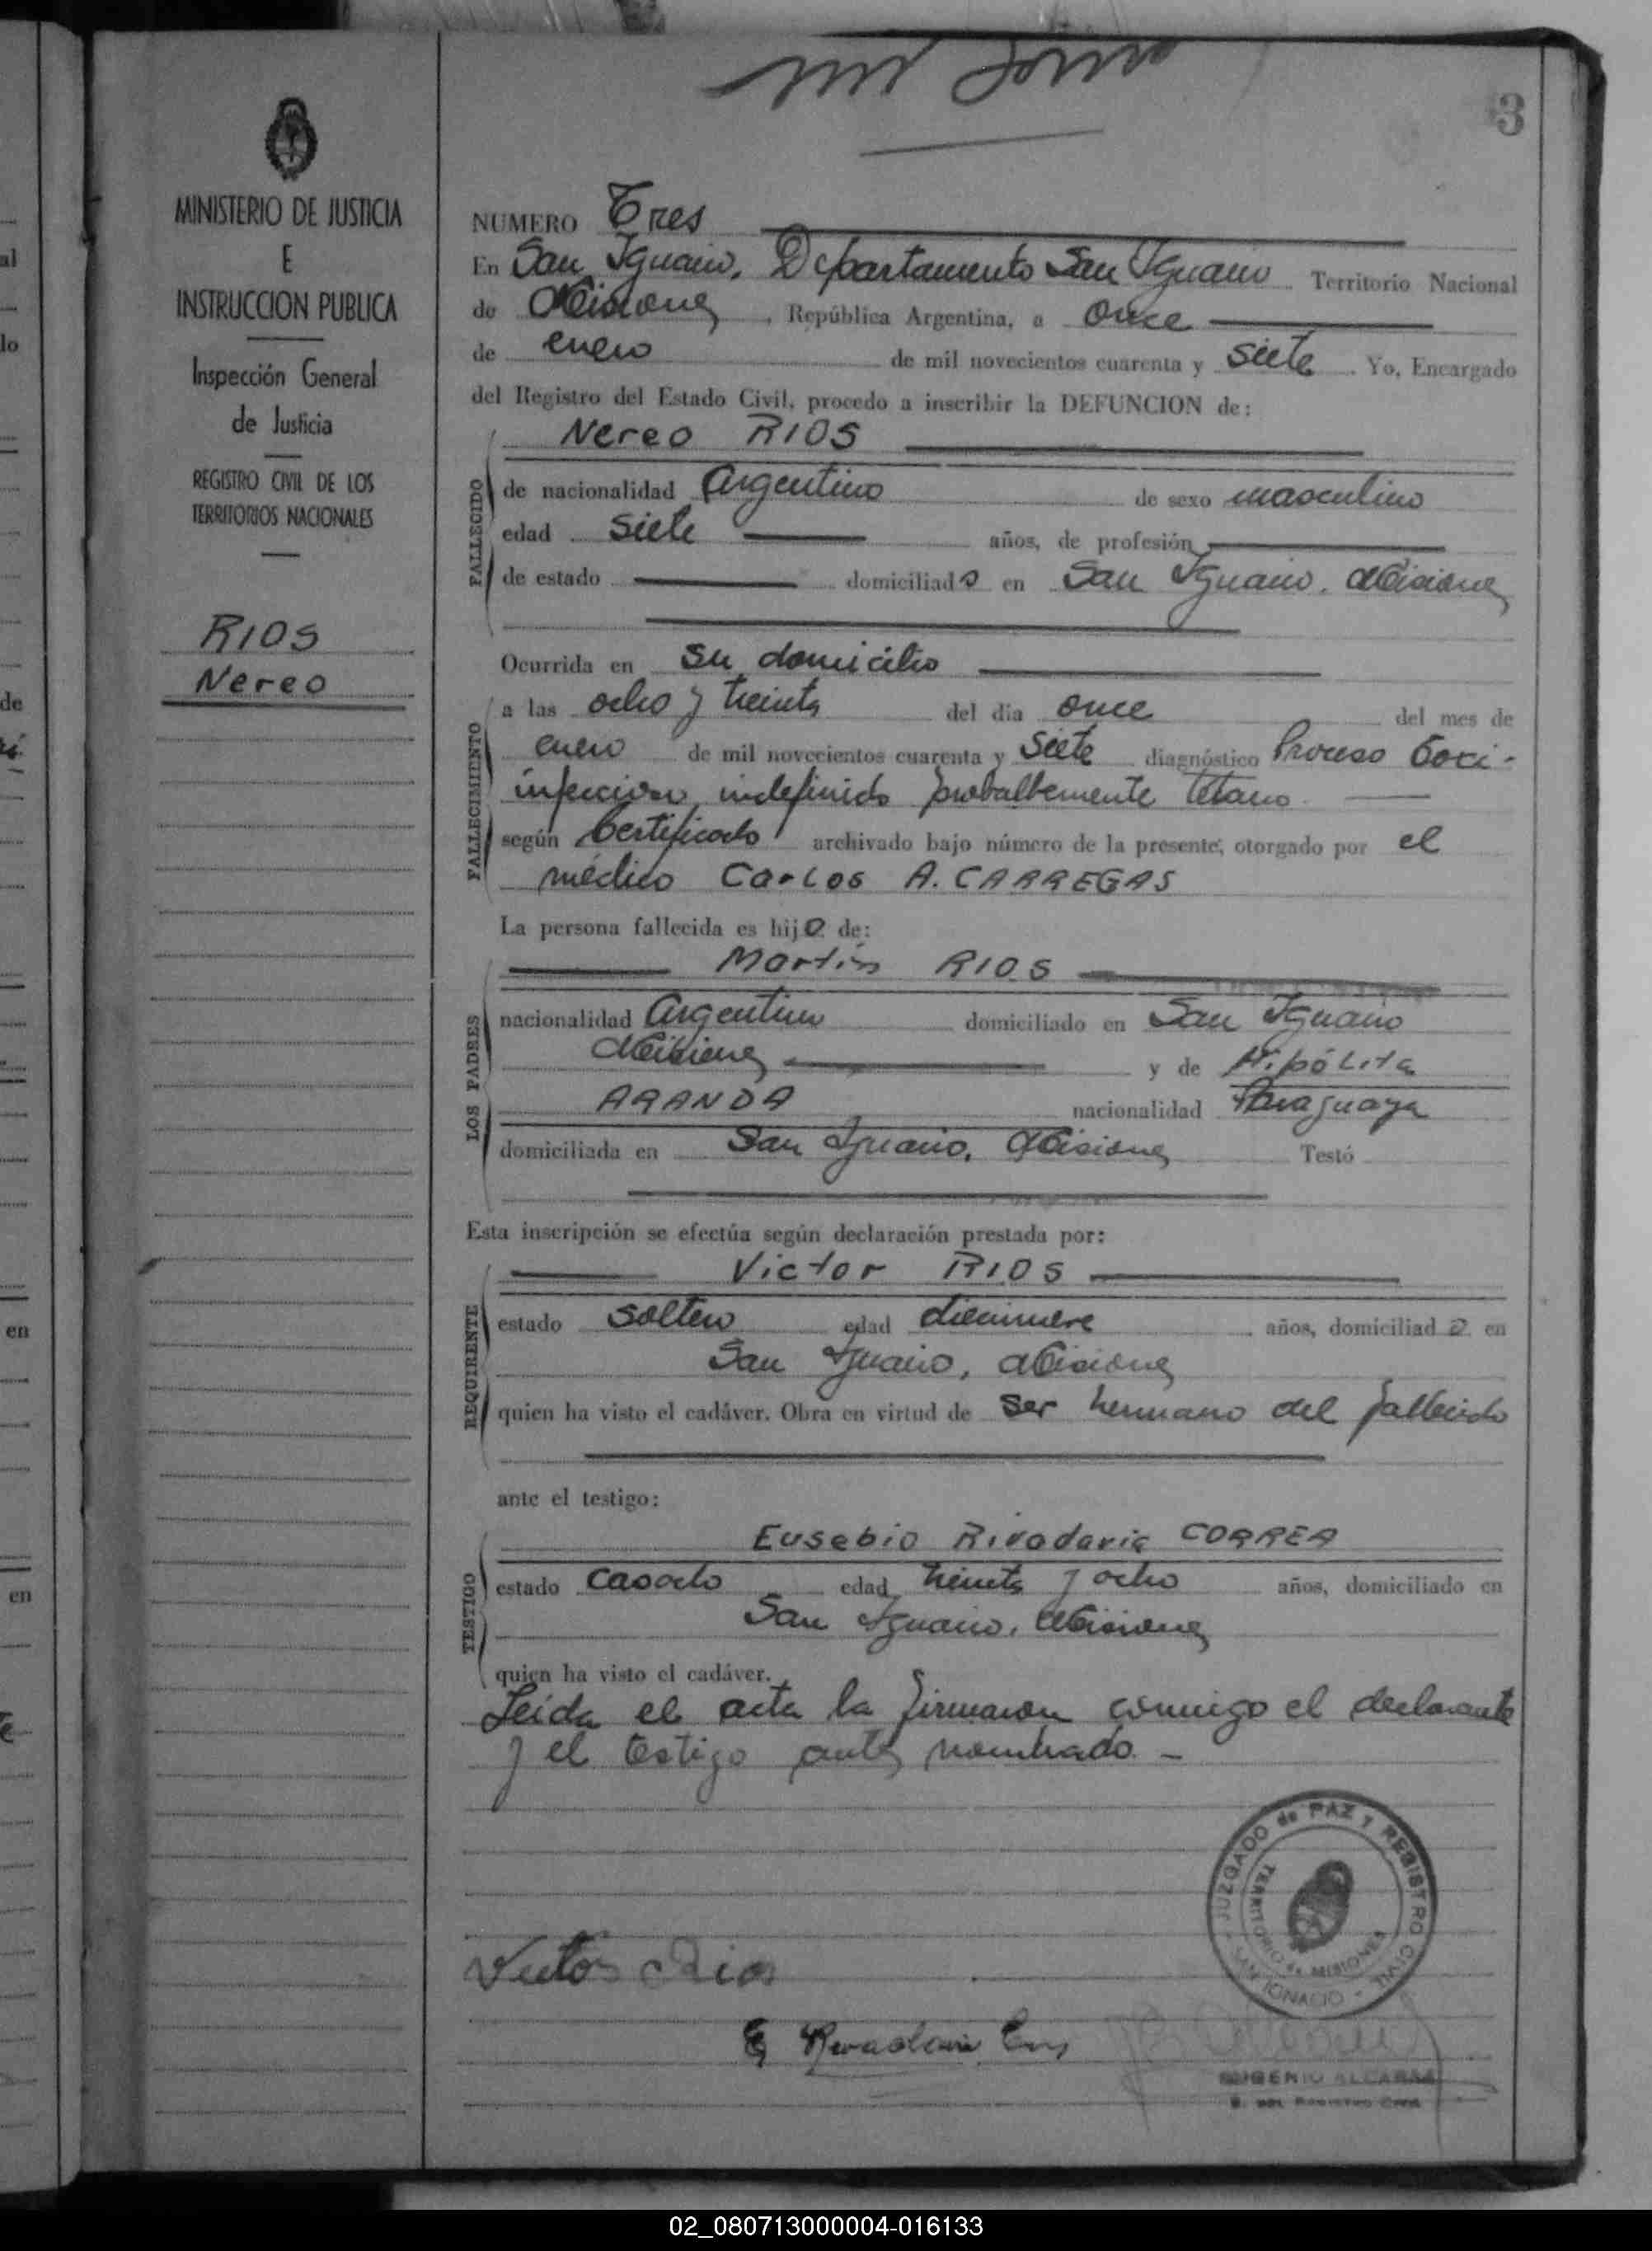 3
MINISTERIO DE JUSTICIA
E
INSTRUCCION PUBLICA
Inspección General
de Justicia
REGISTRO CIVIL DE LOS
TERRITORIOS NACIONALES
RIOS
Nereo
NUMERO Tres
En San Ignacio, Departamento San Ignacio Territorio Nacional
de Misiones, República Argentina, a once
de enero de mil novecientos cuarenta y siete. Yo, Encargado
del Registro del Estado Civil, procedo a inscribir la DEFUNCION de:
Nereo RIOS
FALLECIDO
de nacionalidad Argentino de sexo masculino
edad siete años, de profesión
de estado domiciliado en San Ignacio, Misiones
Ocurrida en su domicilio
FALLECIMIENTO
a las ocho y treinta del día once del mes de
enero de mil novecientos cuarenta y siete diagnóstico Proceso toxi-
infeccioso indefinido probalbemente tétano.
según Certificado archivado bajo número de la presente, otorgado por el
médico Carlos A. CARREGAS
La persona fallecida es hijo de:
Martín RIOS
LOS PADRES
nacionalidad Argentino domiciliado en San Ignacio
Misiones y de Hipólita
ARANDA nacionalidad Paraguaya
domiciliada en San Ignacio, Misiones Testó
Esta inscripción se efectúa según declaración prestada por:
Victor RIOS
REQUIRENTE
estado soltero edad diecinueve años, domiciliado en
San Ignacio, Misiones
quien ha visto el cadáver. Obra en virtud de ser hermano del fallecido
ante el testigo:
Eusebio Rivadavia CORREA
TESTIGO
estado casado edad treinta y ocho años, domiciliado en
San Ignacio, Misiones
quien ha visto el cadáver.
Leída el acta la firmaron conmigo el declarante
y el testigo antes nombrado. -
JUZGADO de PAZ Y REGISTRO CIVIL
TERRITORIO de MISIONES
SAN IGNACIO
Victor Rios
E Rivadavia
EUGENIO ALCARAZ
E. DEL REGISTRO CIVIL
al
lo
de
en
en
02_080713000004-016133